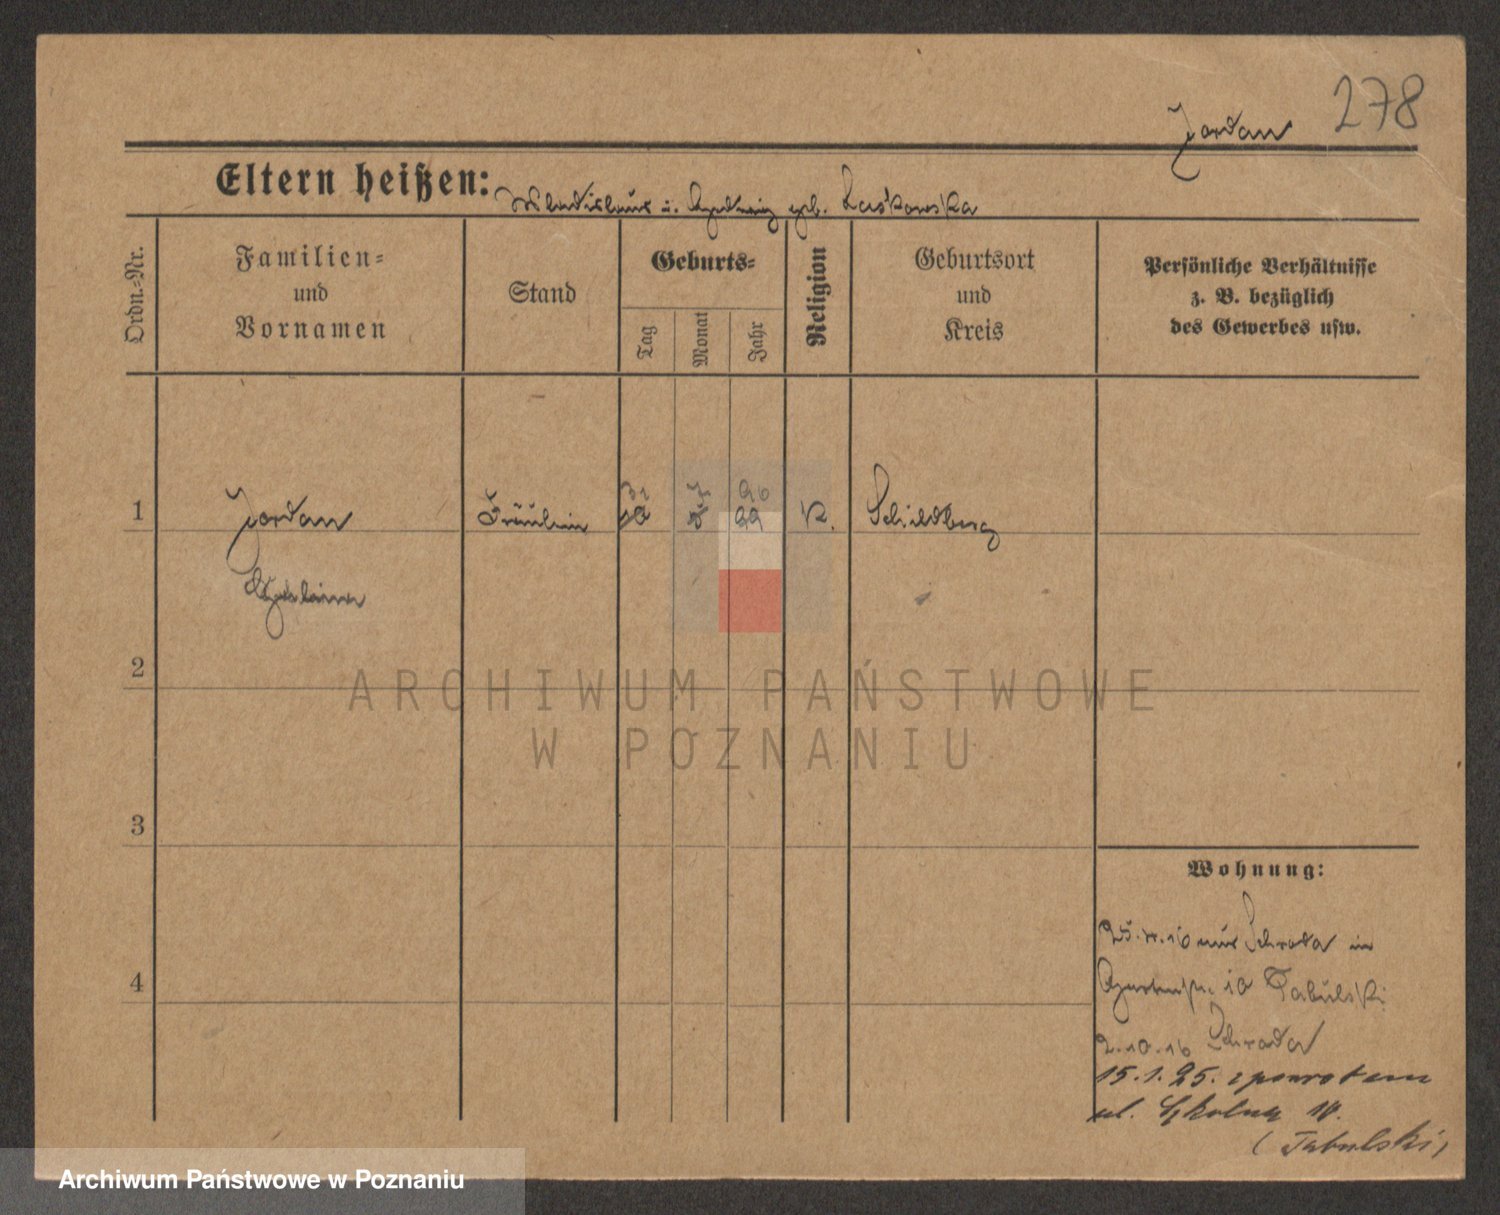 278
Jordan
Eltern heißen: Wladislaus u. Hedwig geb. Laskowska
Ordn.-Nr.
Familien-
und
Vornamen
Stand
Geburts-
Tag
Monat
Jahr
Religion
Geburtsort
und
Kreis
Persönliche Verhältnisse
z. B. bezüglich
des Gewerbes usw.
1
Jordan
Fräulein
K.
Schildberg
2
ARCHIWUM PAŃSTWOWE
W POZNANIU
3
4
Wohnung:
aus Schroda in
10 Tabulski
2.10.16 Schroda
15.1.25. z powrotem
ul. Szkolna 10.
(Tabulski)
Archiwum Państwowe w Poznaniu